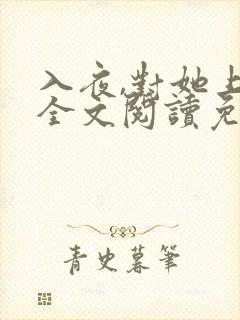 入夜,對她上
全文閱讀免
青史暮筆